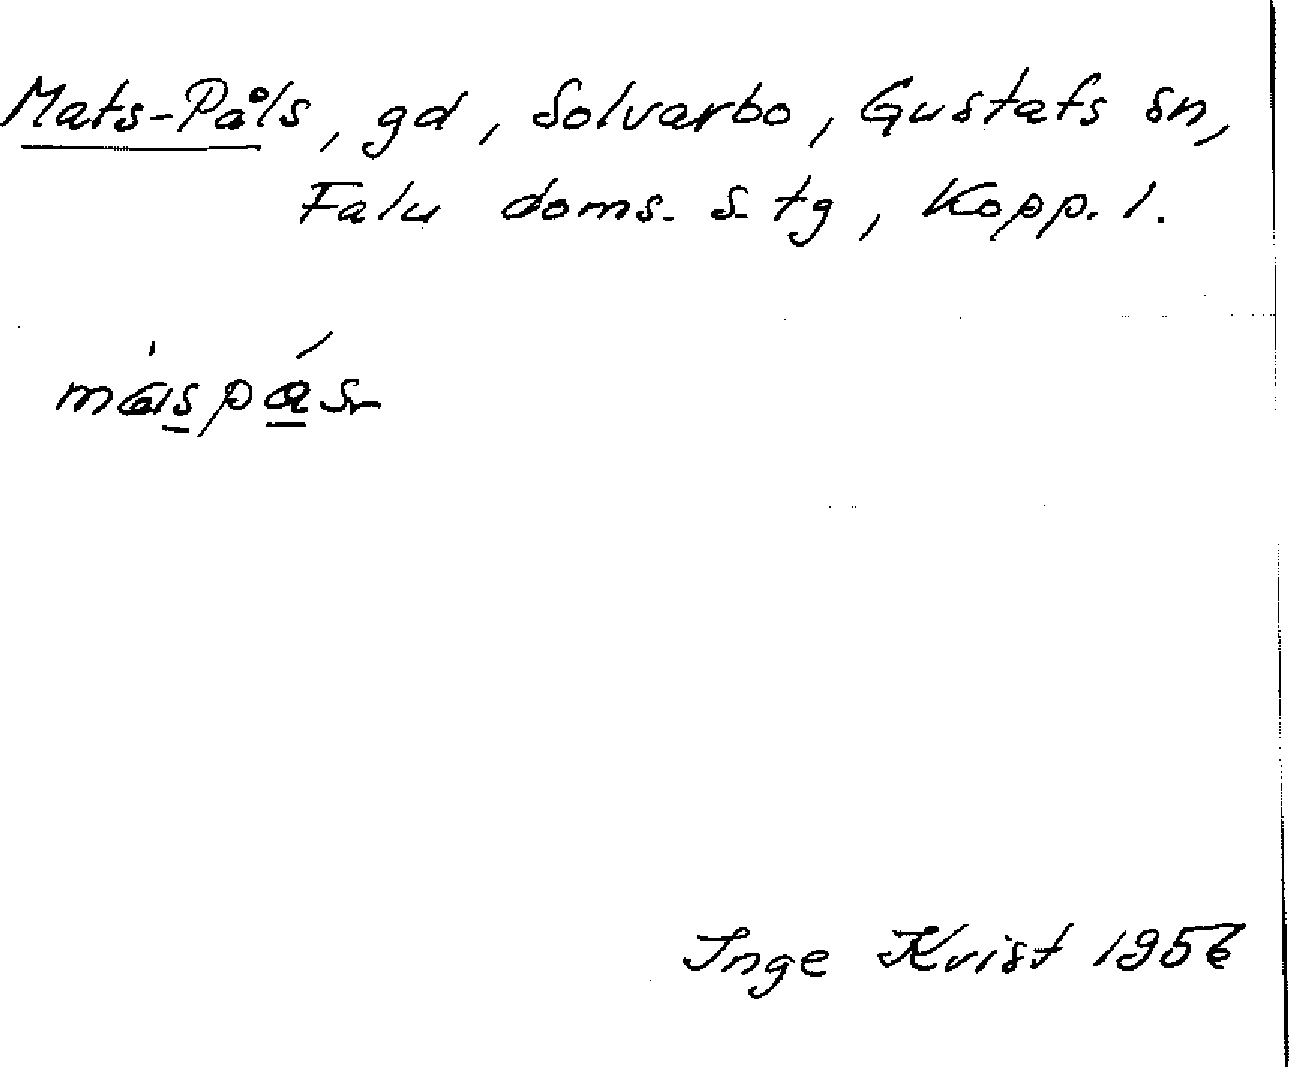 Mats-Påls, gd, Solvarbo, Gustafs sn,
Falu doms. s. tg, Kopp. l.
máspás
Inge Kvist 1956